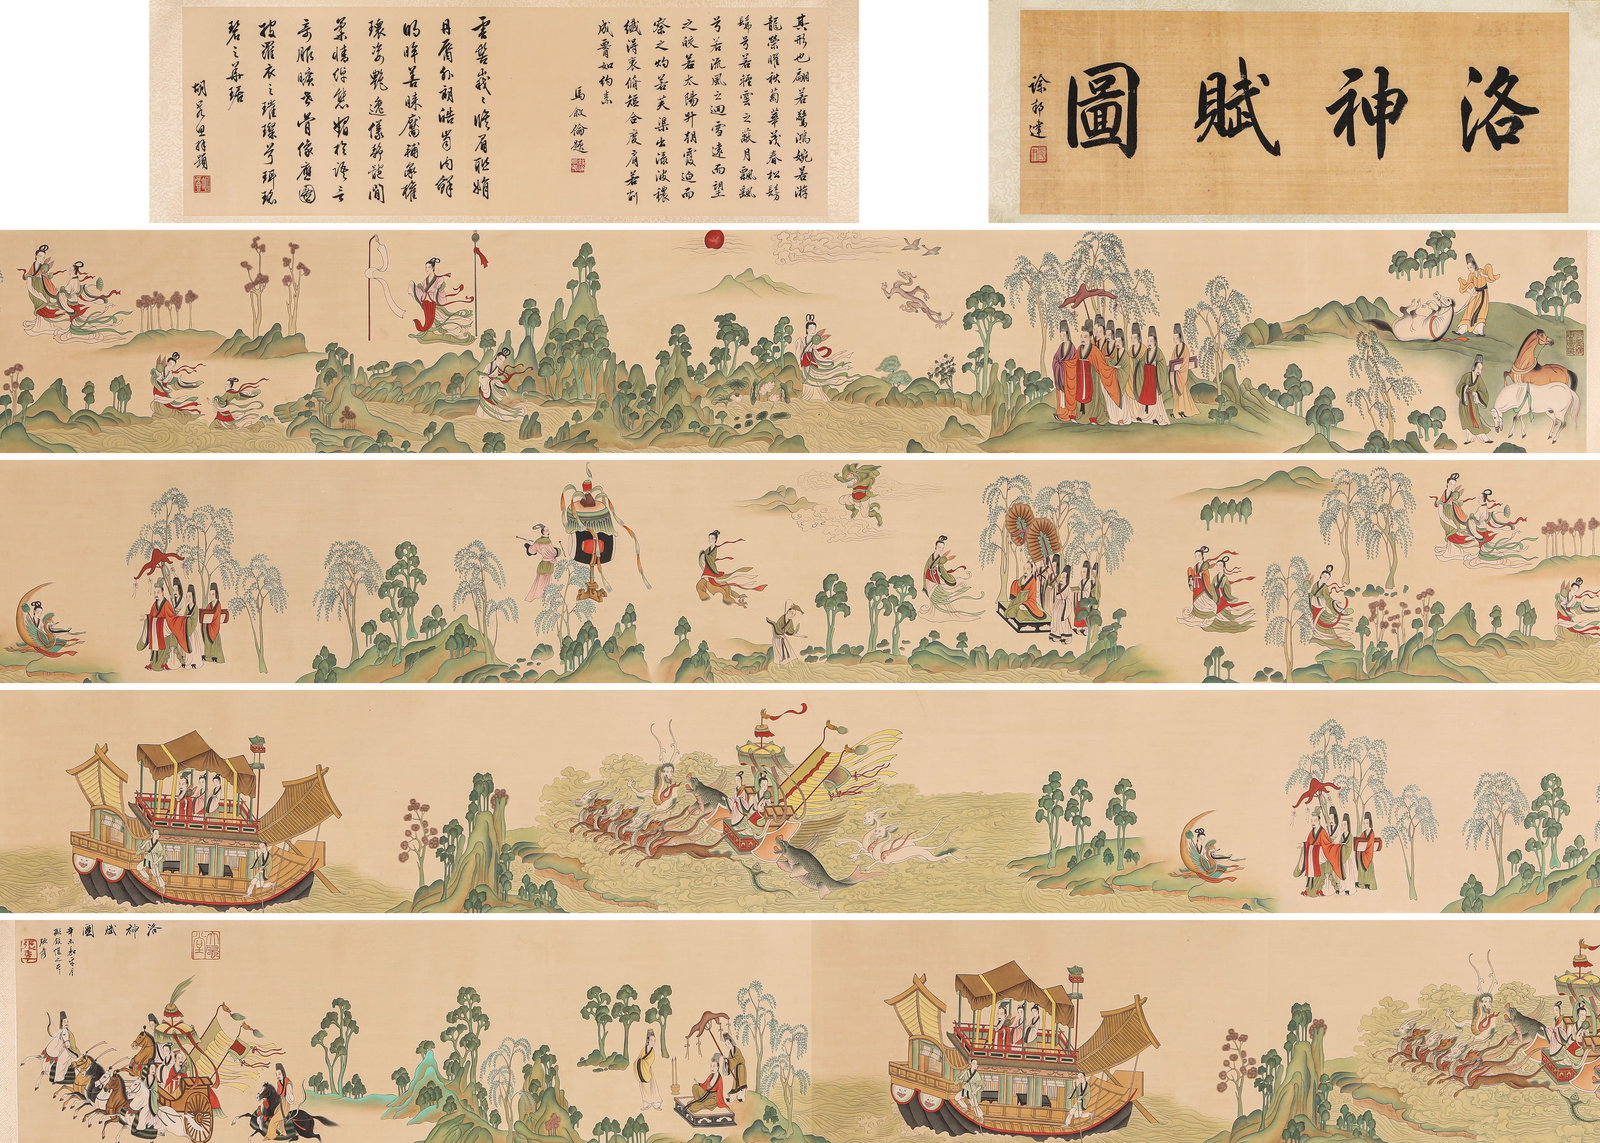 洛神賦圖
徐邦達
其形也翩若驚鴻婉若游
龍榮曜秋菊華茂春松髣
髴兮若輕雲之蔽月飄飄
兮若流風之迴雪遠而望
之皎若太陽升朝霞迫而
察之灼若芙渠出淥波穠
纖得衷脩短合度肩若削
成腰如約素
馬敘倫題
雲髻峩〻脩眉聯娟
丹脣外朗皓齒內鮮
明眸善睞靨輔承權
瓌姿艷逸儀靜體閒
柔情綽態媚於語言
奇服曠世骨像應圖
披羅衣之璀璨兮珥瑤
碧之華琚
胡若思拜題
洛神賦圖